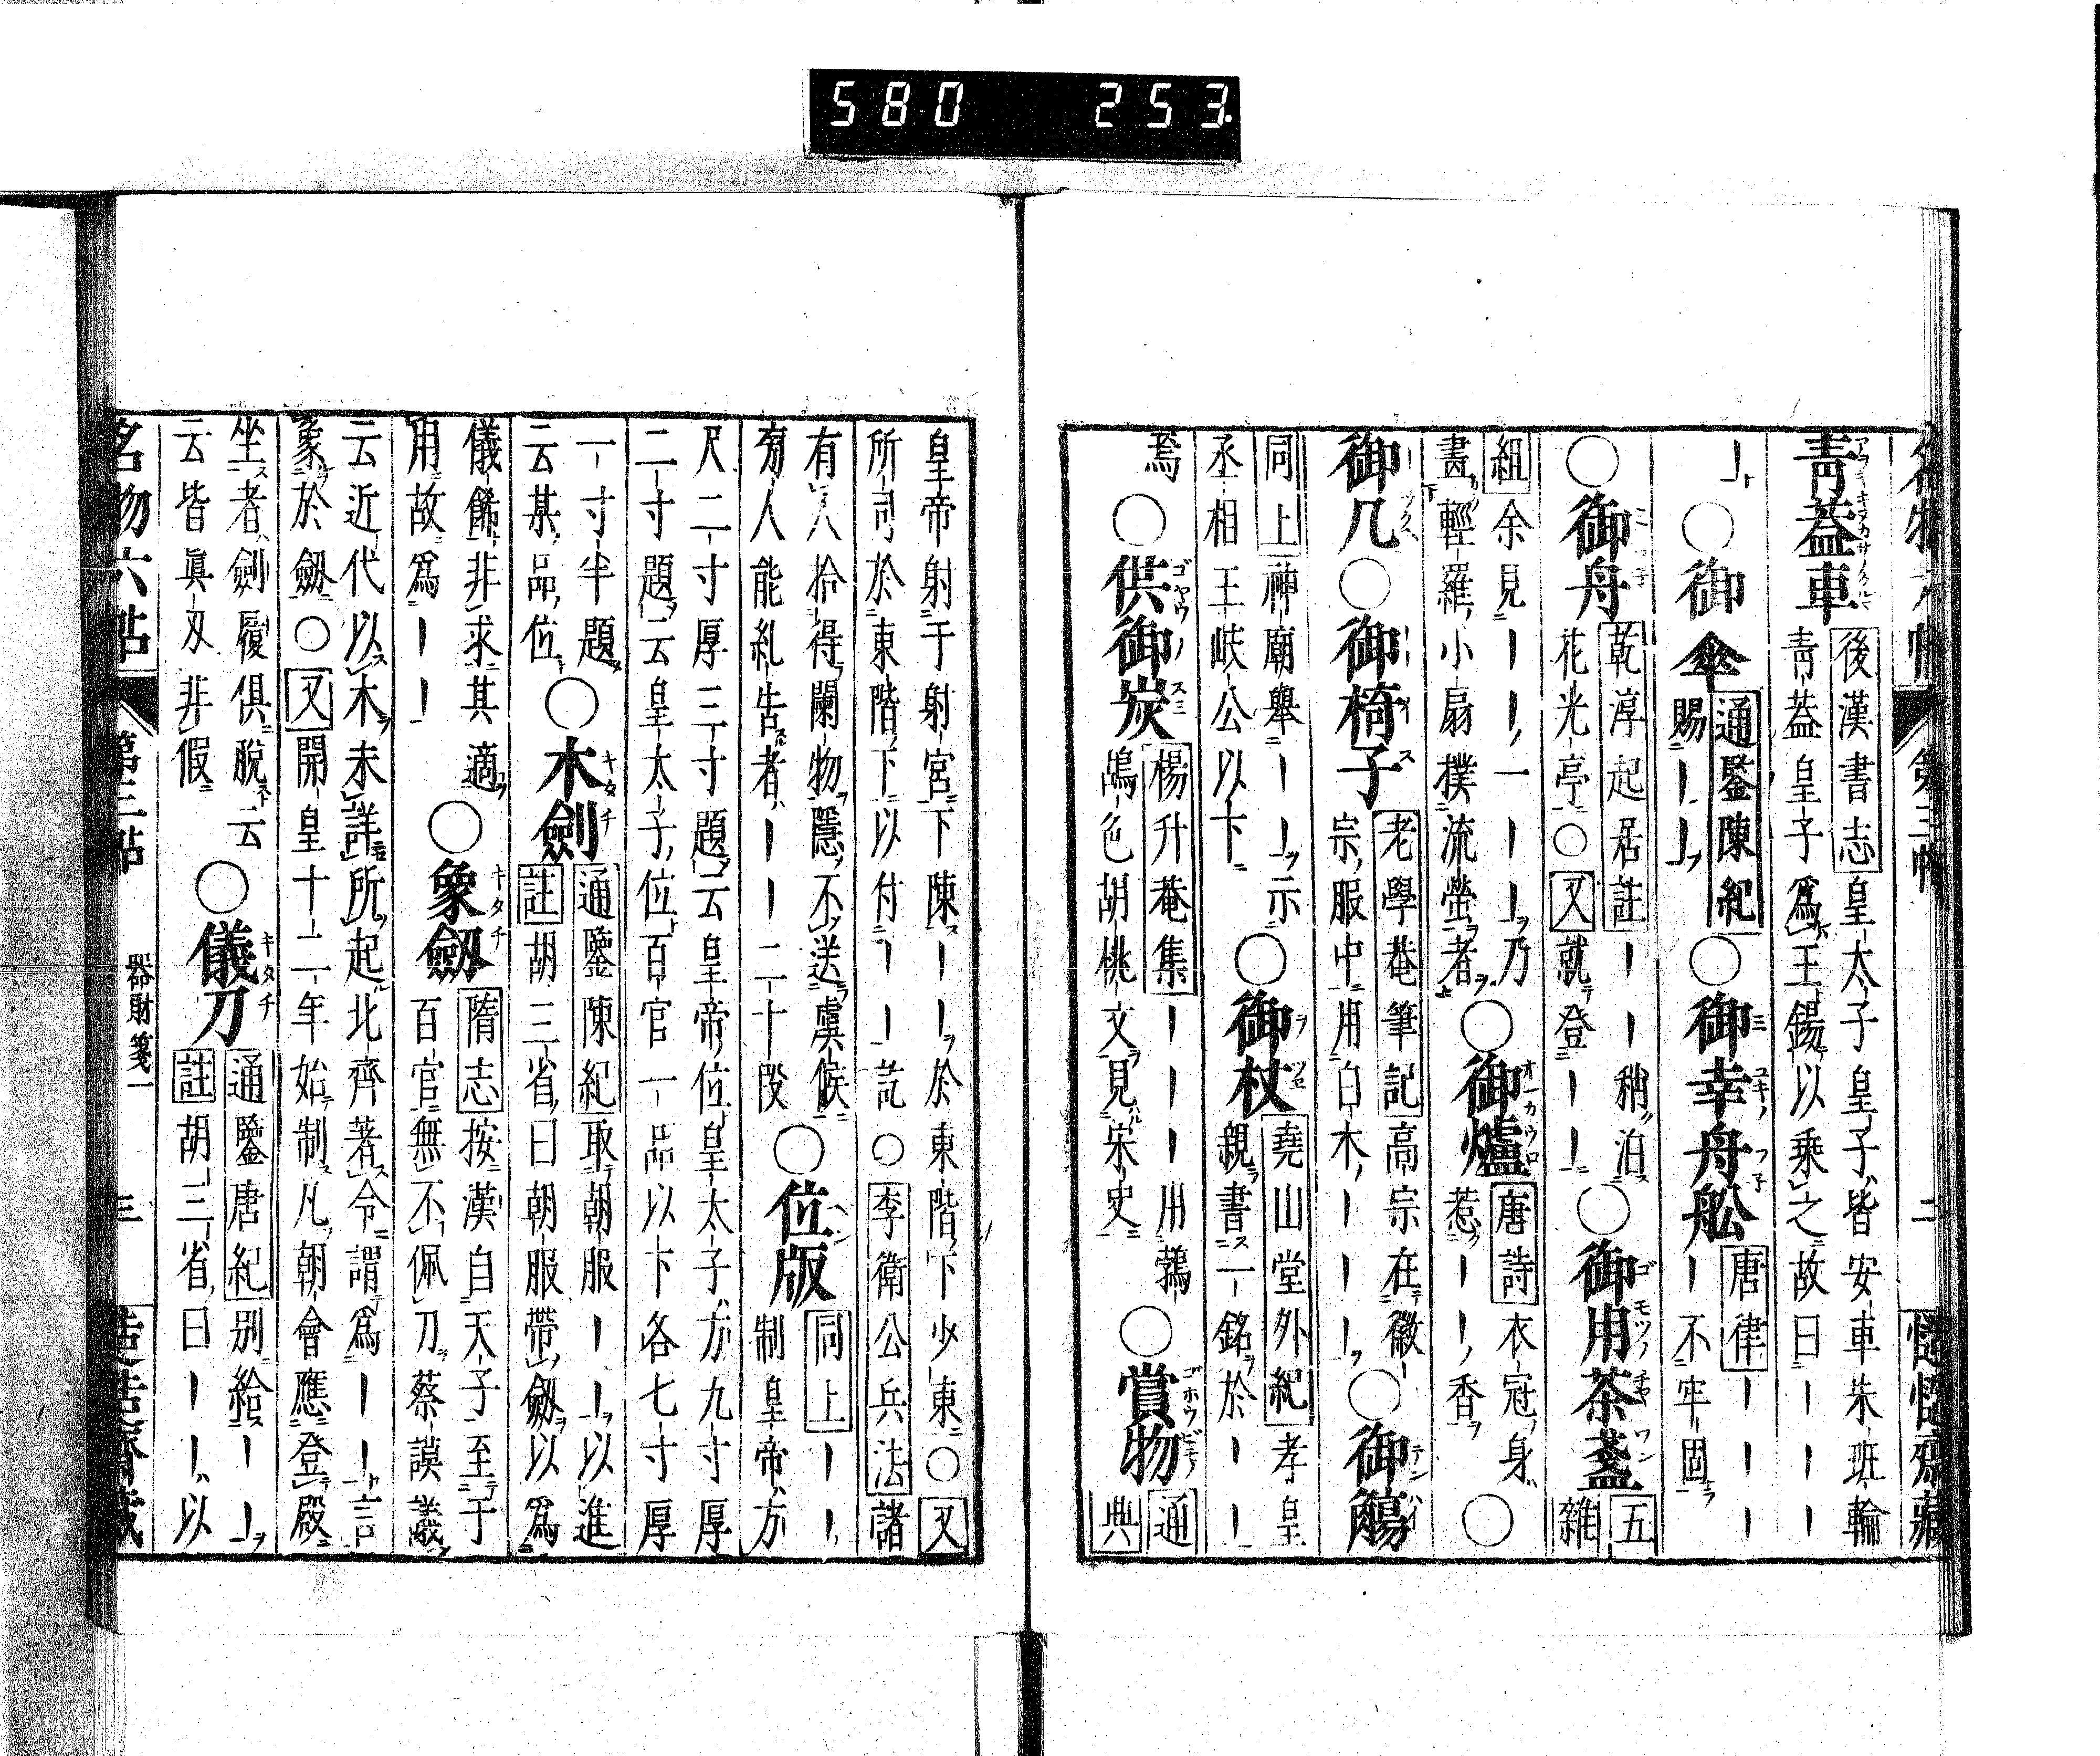 580 253
名物六帖 第三帖 二 慥慥齋藏
靑蓋車
後漢書志皇太子皇子皆安車朱班輪
靑蓋皇子爲王錫以乘之故曰——
—
○御傘
通鑒陳紀
賜——
○御幸舟舩
唐律————
不牢固
○御舟
乾淳起居註——稍泊
花光亭○又就登——
○御用茶盞
五
雜
組余見——一——乃
畫輕羅小扇撲流螢者
○御爐
唐詩衣冠身
惹——香
○
御几○御椅子
老學菴筆記高宗在徽
宗服中用白木———
○御觴
同上神廟舉——示
丞相王岐公以下
○御杖
堯山堂外紀孝皇
親書一銘於——
焉
○供御炭
楊升菴集———用鵓
鴣色胡桃文見宋史
○賞物
通
典
皇帝射于射宮下陳——於東階下少東○又
所司於東階下以付——訖○李衛公兵法諸
有人拾得闌物隱不送虞候
有人能糺告者——二十段
○位版
同上——
制皇帝方
尺二寸厚三寸題云皇帝位皇太子方九寸厚
二寸題云皇太子位百官一品以下各七寸厚
一寸半題
云某品位
○木劍
通鑒陳紀取朝服——以進
註胡三省曰朝服帶劔以爲
儀飾非求其適
用故爲——
○象劔
隋志按漢自天子至于
百官無不佩刀蔡謨議
云近代以木未詳所起北齊著令謂爲——言
象於劔○又開皇十二年始制凡朝會應登殿
坐者劍履俱脫云
云皆眞刄非假
○儀刀
通鑒唐紀別給——
註胡三省曰——以
名物六帖 第三帖 器財箋一 三 慥慥齋藏